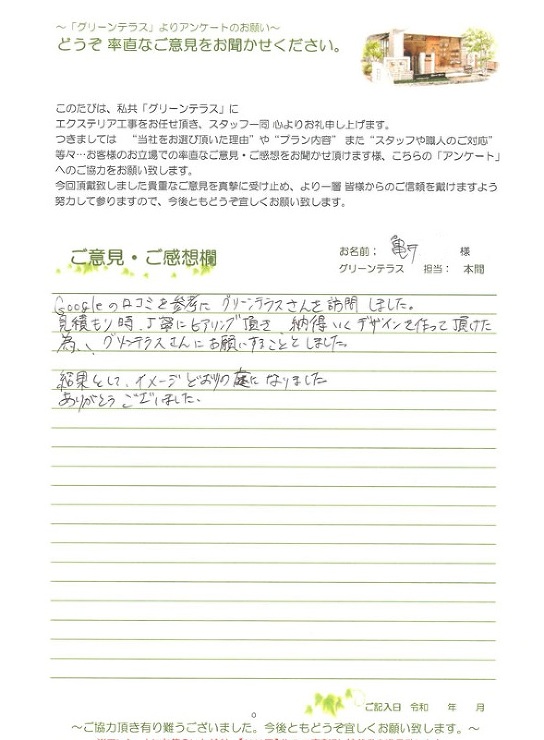 ～「グリーンテラス」よりアンケートのお願い～
どうぞ 率直なご意見をお聞かせください。
このたびは、私共「グリーンテラス」に
エクステリア工事をお任せ頂き、スタッフ一同 心よりお礼申し上げます。
つきましては “当社をお選び頂いた理由” や “プラン内容” また “スタッフや職人のご対応”
等々…お客様のお立場での率直なご意見・ご感想をお聞かせ頂けます様、こちらの「アンケート」
へのご協力をお願い致します。
今回頂戴致しました貴重なご意見を真摯に受け止め、より一層 皆様からのご信頼を戴けますよう
努力して参りますので、今後ともどうぞ宜しくお願い致します。
ご意見・ご感想欄
お名前： 様
グリーンテラス 担当： 本間
Googleの口コミを参考に グリーンテラスさんを訪問しました。
見積もり時、丁寧にヒアリング頂き、納得いくデザインを作って頂けた
為、グリーンテラスさんにお願いすることとしました。
結果として、イメージどおりの庭になりました
ありがとうございました。
ご記入日 令和 年 月
～ご協力頂き有り難うございました。今後ともどうぞ宜しくお願い致します。～